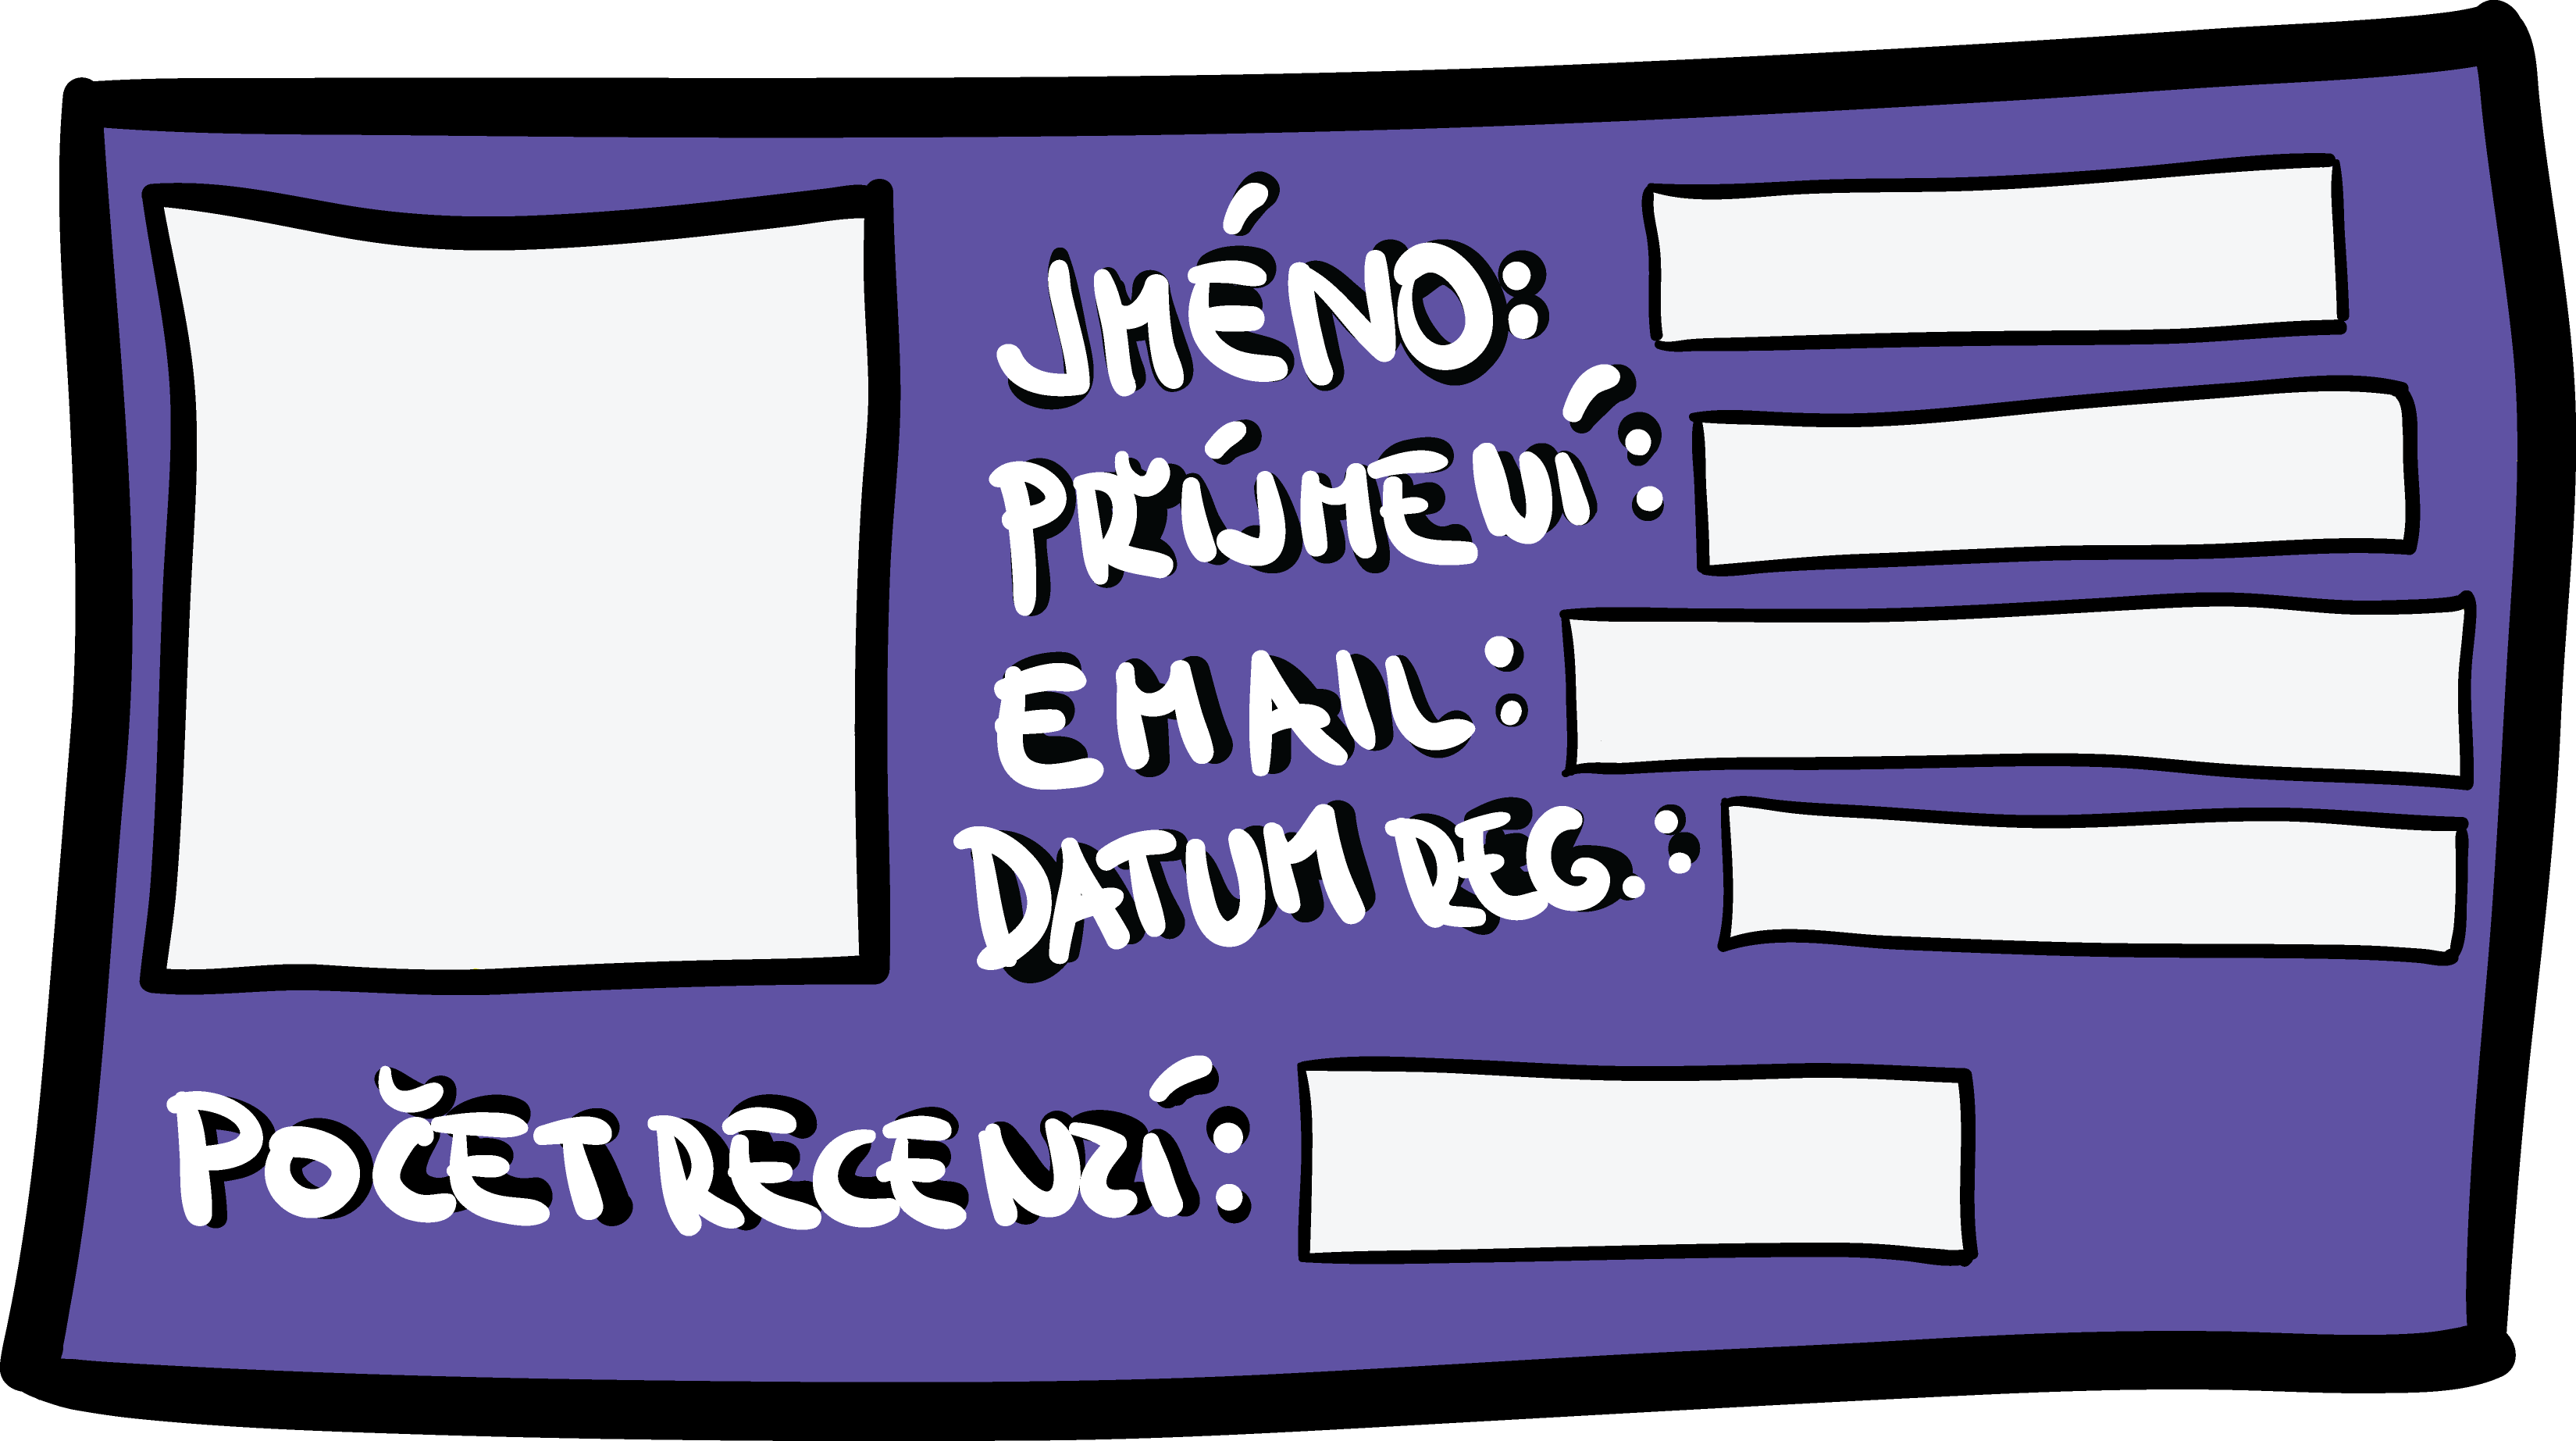 JMÉNO:
PŘÍJMENÍ:
EMAIL:
DATUM REG.:
POČET RECENZÍ: